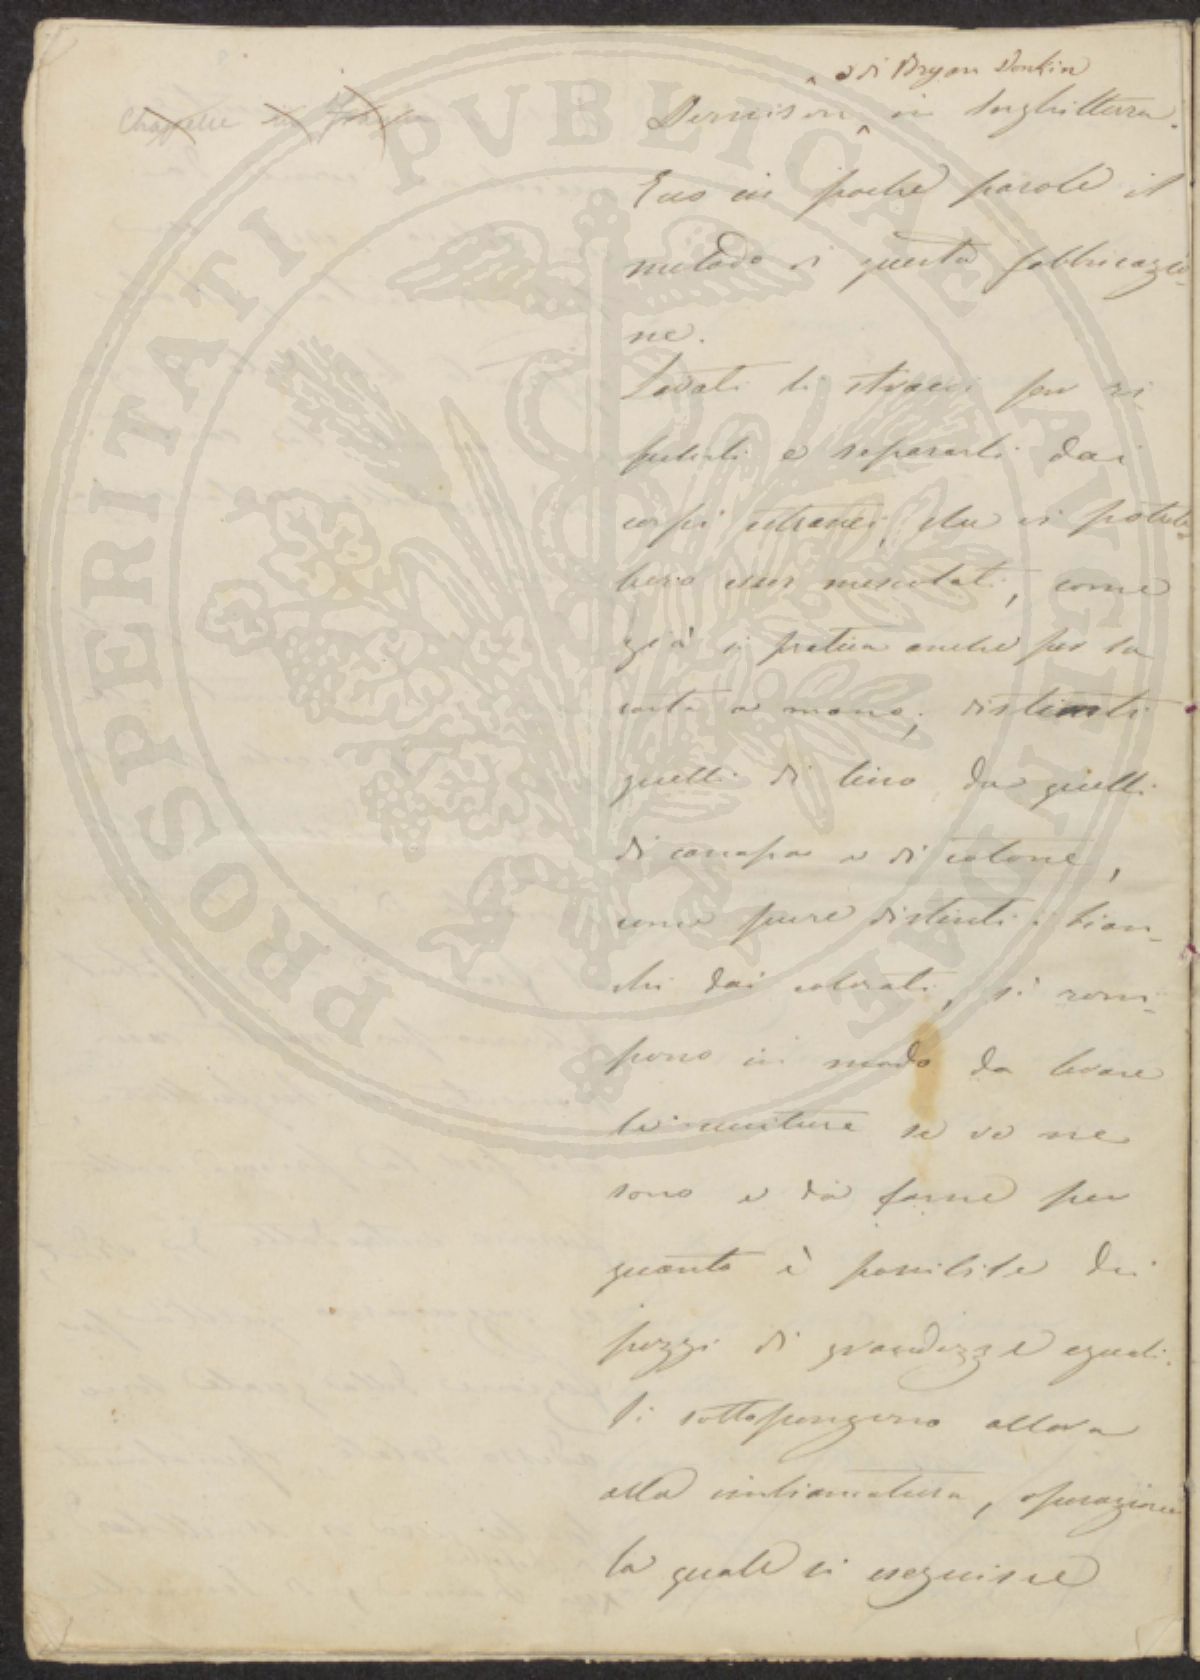 e di Bryan Donkin
Chappelle in Francia
Dennison in Inghilterra.
Ecco in poche parole il
metodo di questa fabbricazio-
ne.
Lavati li stracci per ri
pulirli e separarli dai
corpi estranei, che vi potreb-
bero esser mescolati, come
già si pratica anche per la
carta a mano; distinti
quelli di lino da quelli
di canapa e di cotone,
come pure distinti i bian-
chi dai colorati, si rom-
pono in modo da levare
le cuciture se ve ne
sono e da farne per
quanto è possibile dei
pezzi di grandezze eguali.
Si sottopongono allora
alla imbiancatura, operazione
la quale si eseguisce
PROSPERITATI PVBLICAE AVGENDAE